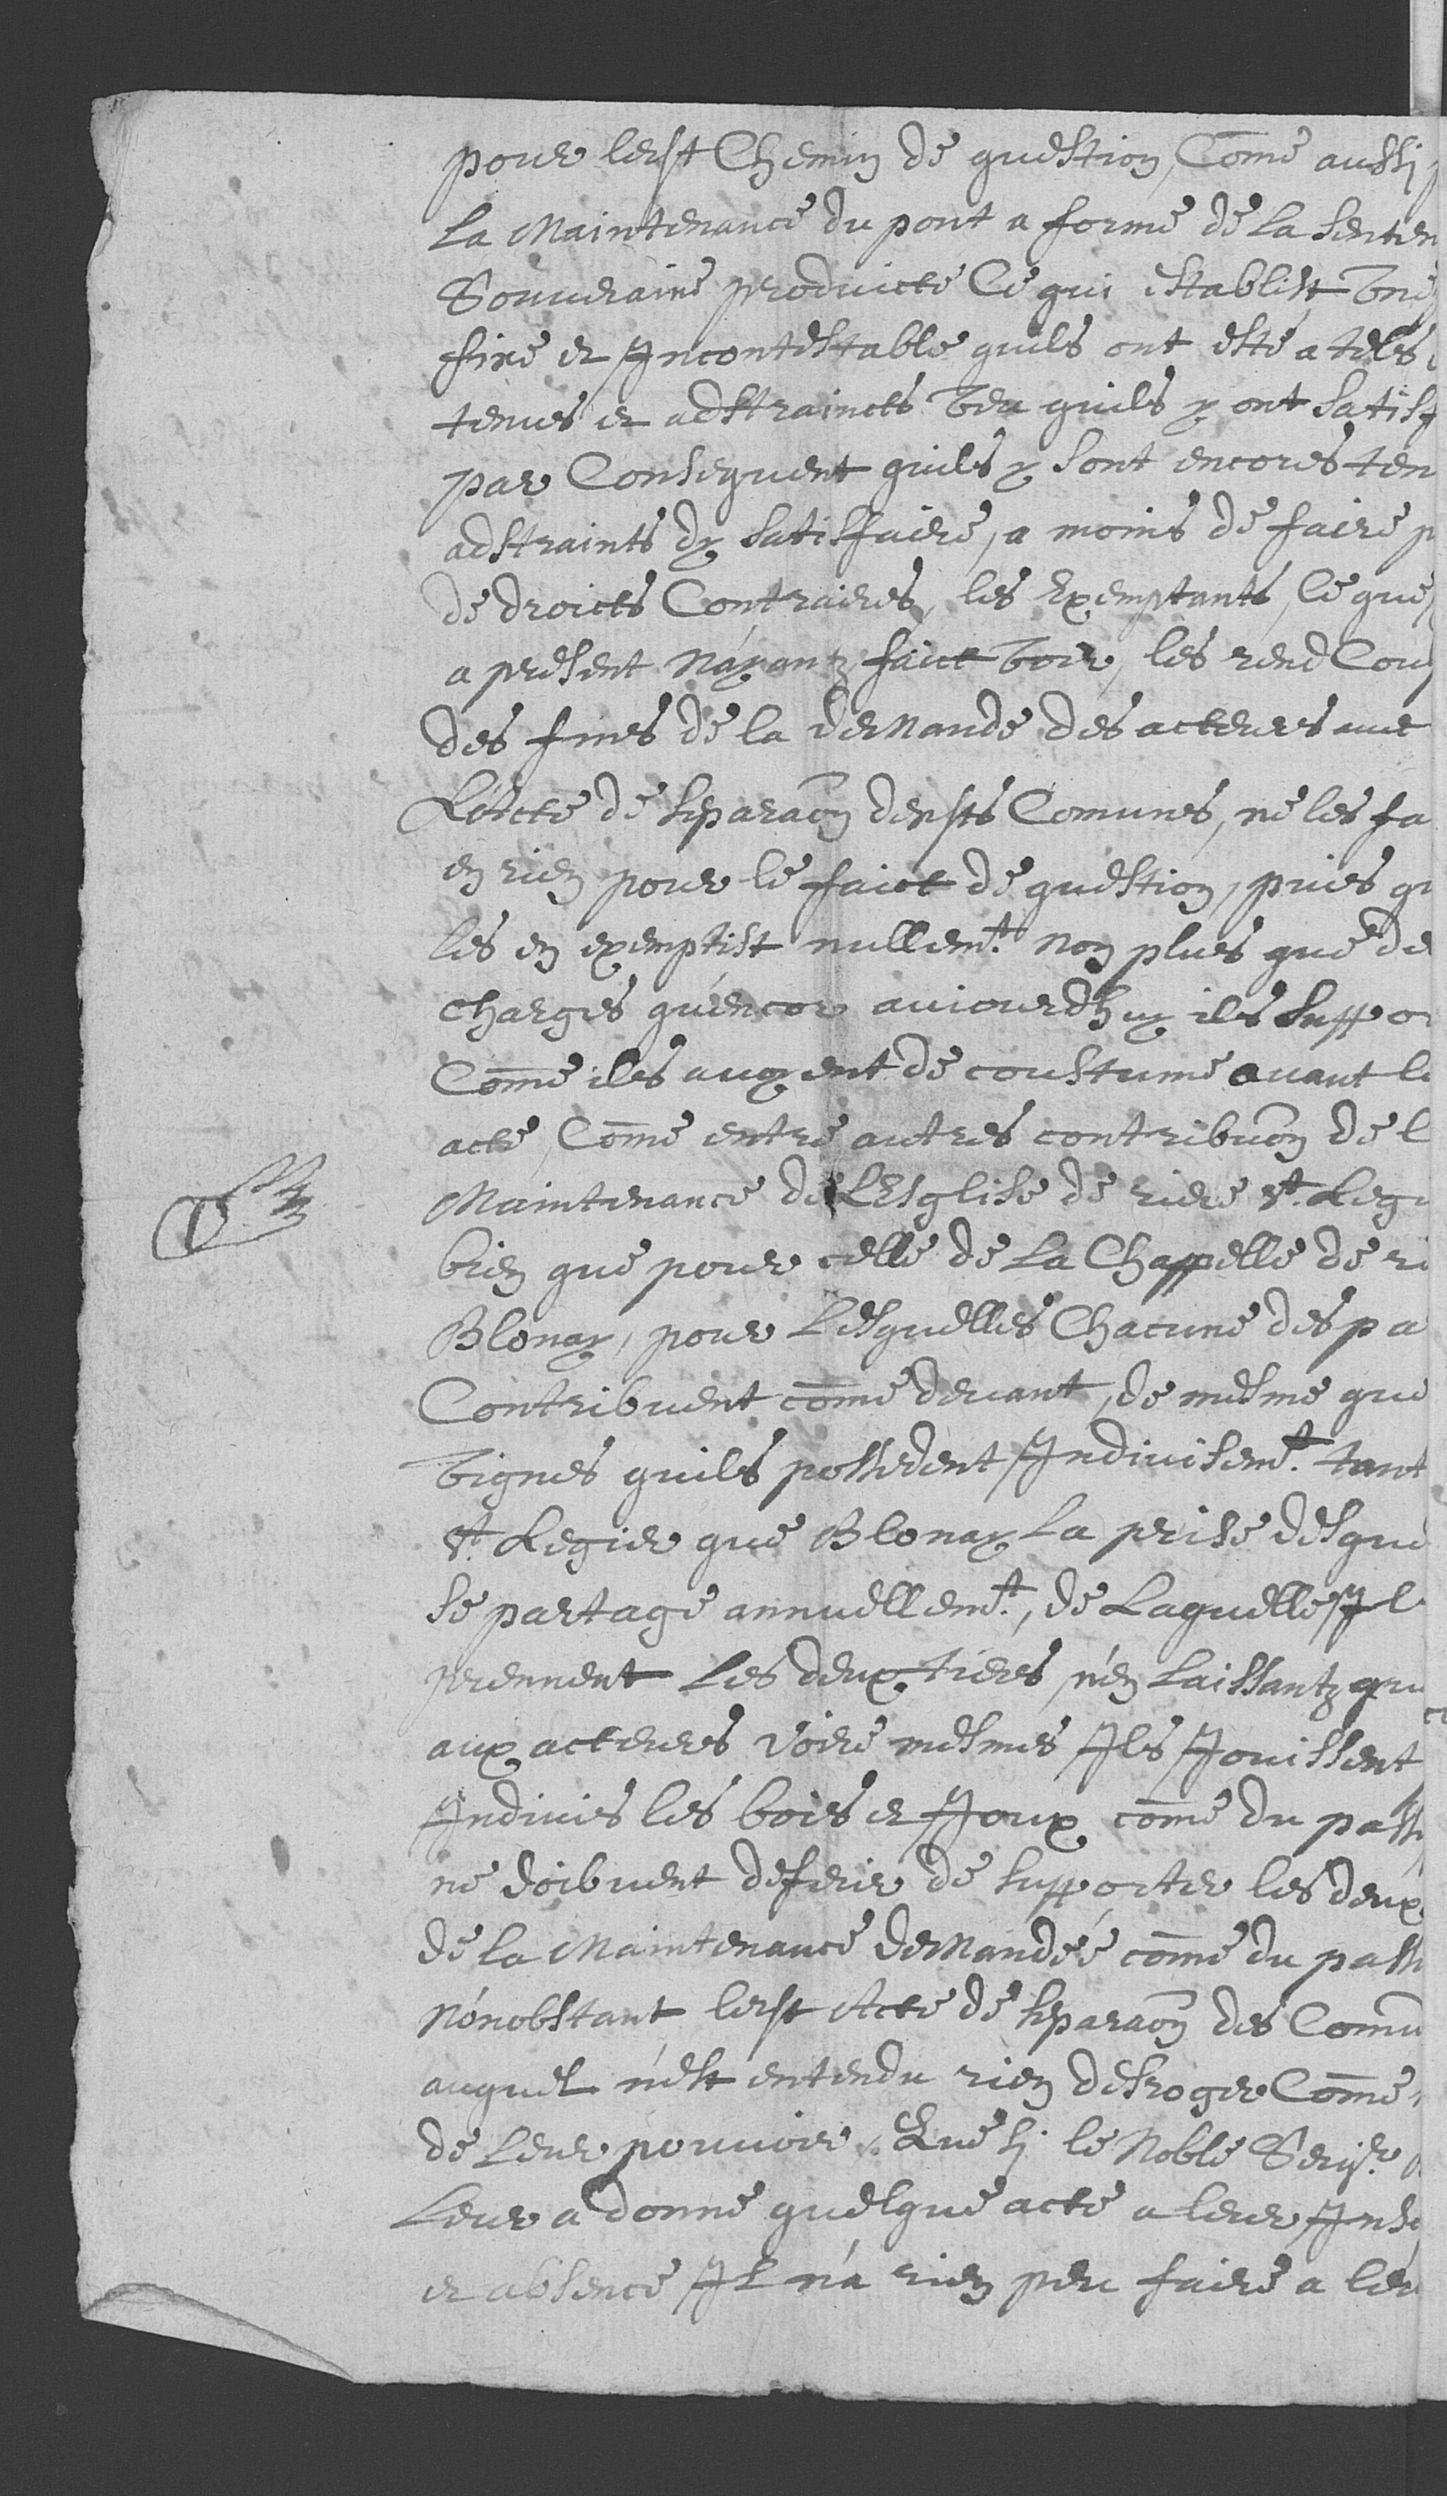 pour ledt Chemin de question, Come aussi p
La Maintenance du pont a forme de La Senten
Souueraine produicte Ce qui establist vne
fixe et Incontestable quils ont esté a tels
tenus et adstraincts veu quils y ont Satisf
par Consequent quils y sont encores ten
adstraints dy Satisfaire, a moins de faire p
de droicts Contraires, les Exemptants, Ce que
a present N'ayantz faict voir, les rend Cou
des fines de la deMande des acteurs aue
L'Acte de Separaon desdts Comunes, ne les fa
en rien pour le faict de question, puis qu
les en exemptist nullemt. non plus que de
charges qu'encor auiourdhuy ils Suppor
Come ils auoyent de coustume auant le
acte, Come entre autres contribuon de l
Maintenance de L'Esglise de riere St. Legi
bien que pour celle de La Chappelle de ri
Blonay, pour Lesquelles Chacune des pa
Contribuent come deuant, de mesme que
vignes quils possedent Indiuisemt. tant
St. Legier que Blonay La prise desque
se partage annuellemt., de Laquelle Il
prennent Les deux tiers, n'en Laissantz qu
aux acteurs voire mesmes Ils Jouissent
Indiuis les bois et Joux come du pass
ne doibuent deferir de supporter les deux
de la Maintenance deMandée come du pass
Nonobstant ledt Acte de Separaon des Comu
auquel n'est entendu rien desroger Come
de Leur pouuoir. Que si le Noble Seigr.
Leur a donné quelque acte a leur Insc
et absence Il n'a rien peu faire a leu